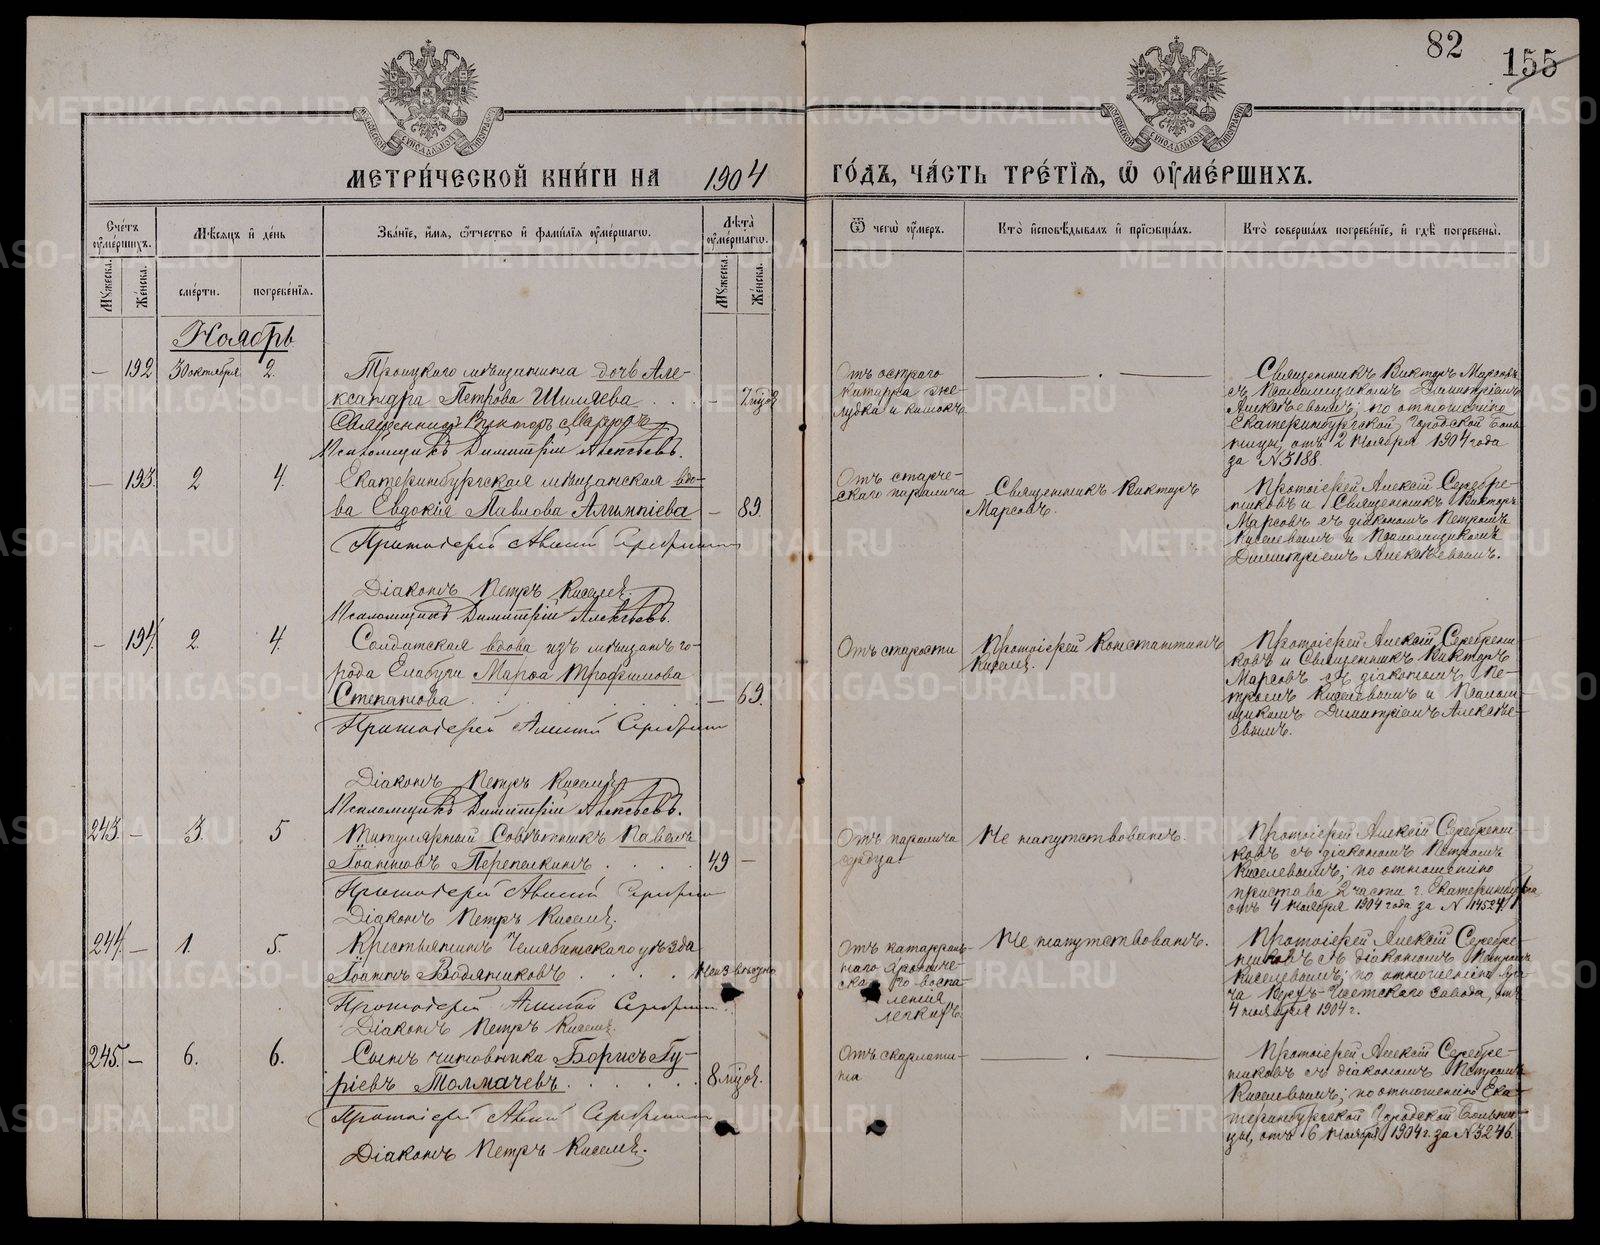 82
155
МЕТРИ́ЧЕСКОЙ КНИ́ГИ НА 1904
ГО́ДЪ, ЧА́СТЬ ТРЕ́ТІѦ, Ѡ҆ ОУ҆МЕ́РШИХЪ.
Сче́тъ оу҆ме́ршихъ.
Мꙋ́жеска.
Же́нска.
Мѣ́сѧцъ и҆ де́нь
сме́рти.
погребе́нїѧ.
Зва́нїе, и҆́мѧ, ѻ҆́тчество и҆ фамѝлїѧ оу҆ме́ршагѡ.
Лѣ̀та оу҆ме́ршагѡ.
Мꙋ́жеска.
Же́нска.
Ѿ чегѡ̀ оу҆́меръ.
Кто̀ и҆сповѣ́дывалъ и҆ прїѡбща́лъ.
Кто̀ соверша́лъ погребе́нїе, и҆ гдѣ̀ погребены̀.
Ноябрь
— 192 30 октября 2.
Троицкаго мѣщанина дочь Але-
ксандра Петрова Шиляева . . . — 7 мѣсяц.
Священникъ Викторъ Марсовъ
Псаломщикъ Димитрій Алексѣевъ.
Отъ остраго
катарра же-
лудка и кишокъ.
Священникъ Викторъ Марсовъ
съ Псаломщикомъ Димитріемъ
Алексѣевымъ; по отношенію
Екатеринбургской Городской Боль-
ницы, отъ 2 Ноября 1904 года
за № 3188.
— 193. 2 4.
Екатеринбургская мѣщанская вдо-
ва Евдокія Павлова Алимпіева — 89.
Протоіерей Алексій Серебрениковъ
Діаконъ Петръ Киселевъ.
Псаломщикъ Димитрій Алексѣевъ.
Отъ старче-
скаго паралича
Священникъ Викторъ
Марсовъ.
Протоіерей Алексій Серебре-
никовъ и Священникъ Викторъ
Марсовъ съ діакономъ Петромъ
Киселевымъ и Псаломщикомъ
Димитріемъ Алексѣевымъ.
— 194. 2. 4.
Солдатская вдова изъ мѣщанъ го-
рода Елабуги Марѳа Трофимова
Степанова — 69.
Протоіерей Алексій Серебрениковъ
Діаконъ Петръ Киселевъ
Псаломщикъ Димитрій Алексѣевъ.
Отъ старости
Протоіерей Константинъ
Киселевъ.
Протоіерей Алексій Серебрени-
ковъ и Священникъ Викторъ
Марсовъ съ діакономъ Пе-
тромъ Киселевымъ и Псалом-
щикомъ Димитріемъ Алексѣе-
вымъ.
243. — 3. 5
Титулярный Совѣтникъ Павелъ
Іоанновъ Перепелкинъ . . . . 49 —
Протоіерей Алексій Серебрениковъ
Діаконъ Петръ Киселевъ.
Отъ паралича
сердца
Не напутствованъ.
Протоіерей Алексій Серебрени-
ковъ съ діакономъ Петромъ
Киселевымъ; по отношенію
пристава 2 части г. Екатеринбурга
отъ 4 Ноября 1904 года за № 14524.
244. — 1. 5.
Крестьянинъ Челябинскаго уѣзда
Іоаннъ Водяниковъ . . . . Неизвѣстно
Протоіерей Алексій Серебрениковъ.
Діаконъ Петръ Киселевъ.
Отъ катарраль-
наго хрониче-
скаго воспа-
ленія
легкихъ.
Не напутствованъ.
Протоіерей Алексій Серебре-
никовъ съ діакономъ Петромъ
Киселевымъ; по отношенію вра-
ча Верхъ-Исетскаго завода, отъ
4 ноября 1904 г.
245. — 6. 6.
Сынъ чиновника Борисъ Гу-
ріевъ Толмачевъ . . . . . . 8 мѣсяц.
Протоіерей Алексій Серебрениковъ
Діаконъ Петръ Киселевъ.
Отъ скарлати-
на
Протоіерей Алексій Серебре-
никовъ съ діакономъ Петромъ
Киселевымъ; по отношенію Ека-
теринбургской Городской Больни-
цы, отъ 6 Ноября 1904 г. за № 3246.
METRIKI.GASO-URAL.RU